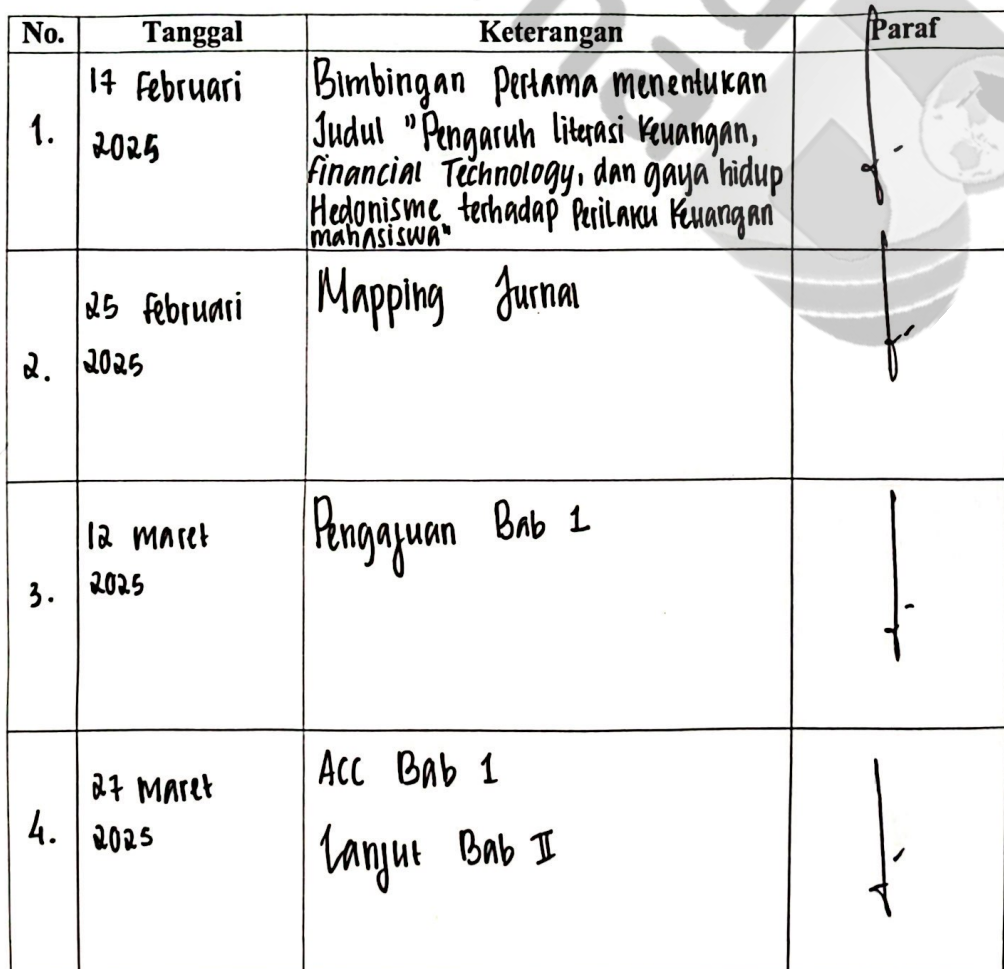 No. Tanggal Keterangan Paraf
1. 17 Februari 2025 Bimbingan Pertama menentukan
Judul "Pengaruh literasi Keuangan,
financial Technology, dan gaya hidup
Hedonisme terhadap Perilaku Keuangan
mahasiswa"
2. 25 Februari 2025 Mapping Jurnal
3. 12 Maret 2025 Pengajuan Bab 1
4. 27 Maret 2025 Acc Bab 1
Lanjut Bab II